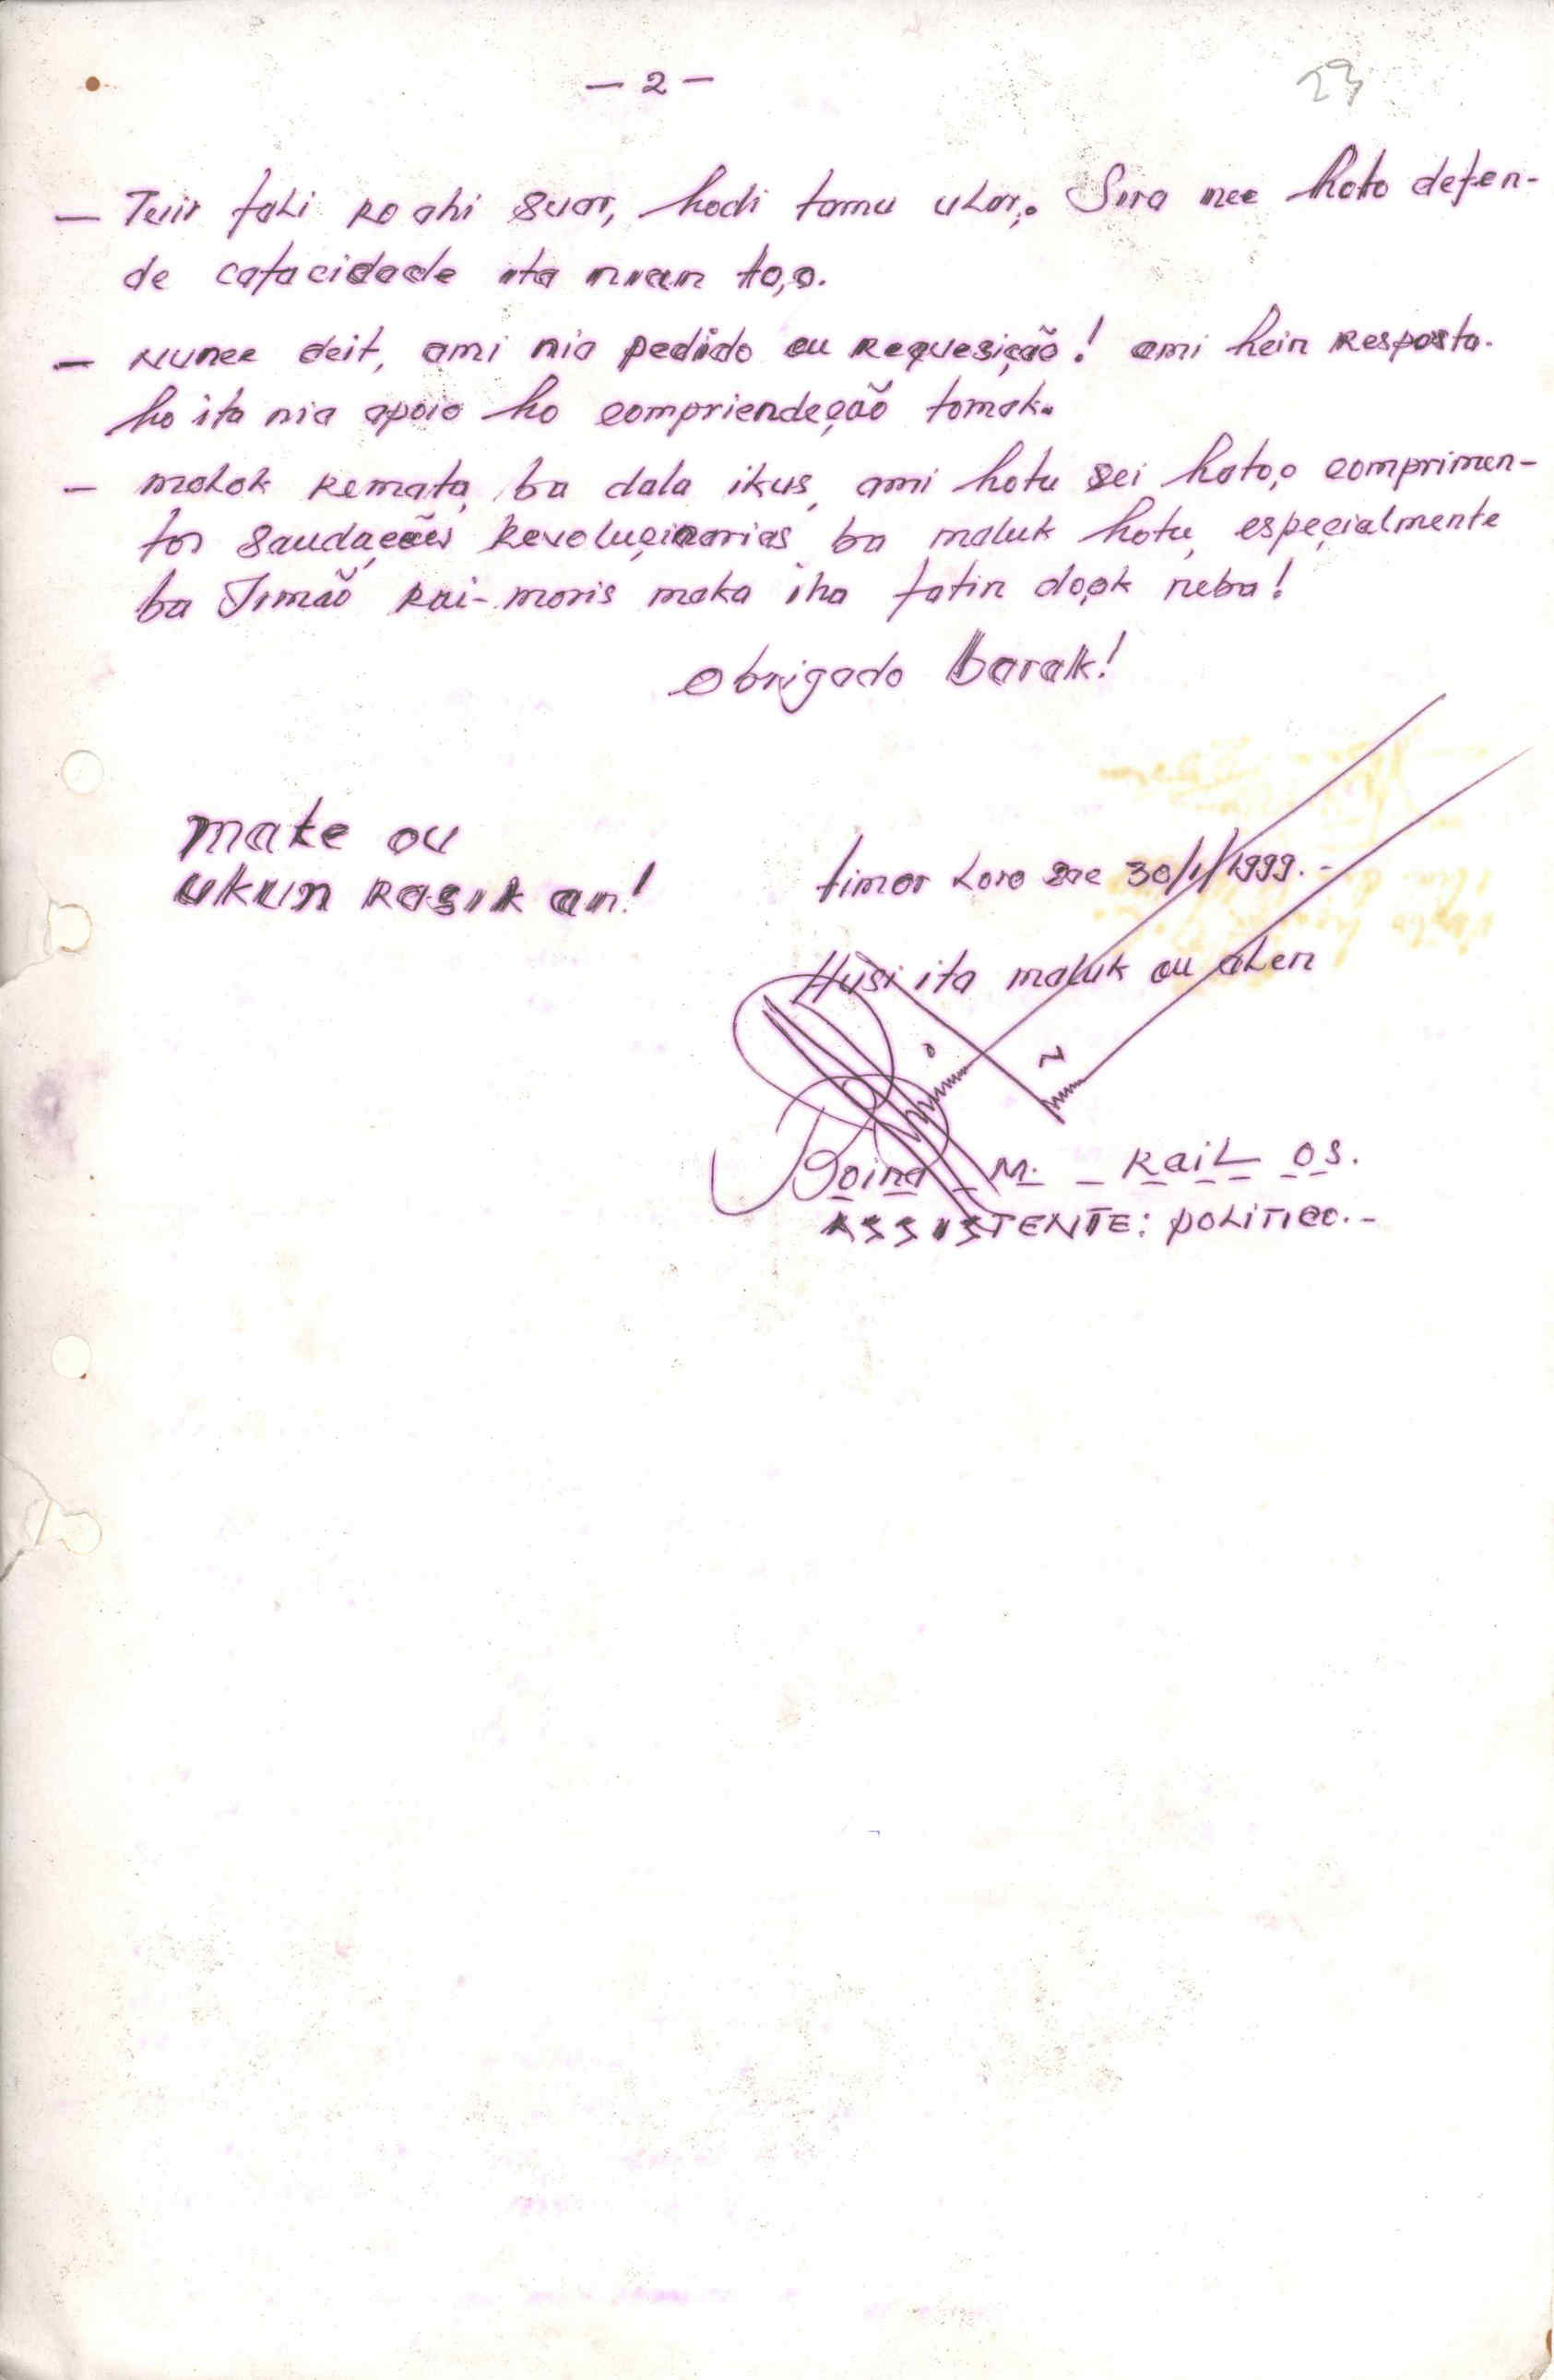 — 2 —
23
— Tuir fali ko ahi suar, hodi tamu ular,. Sira nee hoto defen-
de capacidade ita nian to,o.
— Nunee deit, ami nia pedido ou Requesição! ami hein Resposta.
ho ita nia apoio ho compriendeção tomak.
— molok Remata, ba dala ikus, ami hotu sei hato,o comprimen-
tos saudações Revoluçinarias, ba maluk hotu, espeçialmente
ba Irmão Kai-moris maka iha fatin dook neba!
Obrigado Barak!
Mate ou
ukun Rasik an!
timor Loro sae 30/1/1999.-
Husi ita maluk ou alen
M. Kail OS.
ASSISTENTE: POLITICO.-